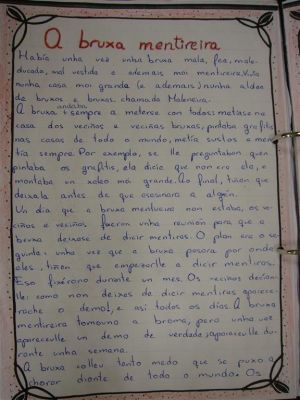 A bruxa mentireira
Había unha vez unha bruxa mala, fea, male-
ducada, mal vestida e ademais moi mentireira. Vivía
nunha casa moi grande (e ademais) nunha aldea
de bruxos e bruxas chamada
A bruxa andaba sempre a meterse con todos: metíase na
casa dos veciños e veciñas bruxas, pintaba grafitis
nas casas de todo o mundo, metía sustos e men-
tía sempre. Por exemplo, se lle preguntaban quen
pintaba os grafitis, ela dicía que non era ela, e
montaba un xaleo moi grande. Ao final, tiñan que
deixala antes de que asasinara a alguén.
Un día que a bruxa mentireira non estaba, os ve-
ciños e veciñas fixeron unha reunión para que a
bruxa deixase de dicir mentiras. O plan era o se-
guinte: unha vez que a bruxa pasara por onda
eles, tiñan que empezarlle a dicir mentiras.
Eso fixérono durante un mes. Os veciños decían-
lle: como non deixes de dicir mentiras aparece-
rache o demo!, e así todos os días. A bruxa
mentireira tomouno a broma, pero unha vez
apareceulle un demo de verdade; apareceulle du-
rante unha semana.
A bruxa colleu tanto medo que se puxo a
chorar diante de todo o mundo. Os